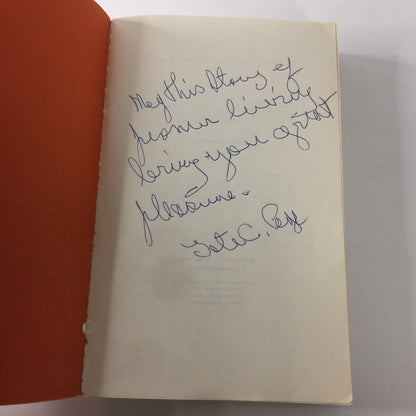 May this Story of
pioneer living
bring you great
pleasure.
C. Page